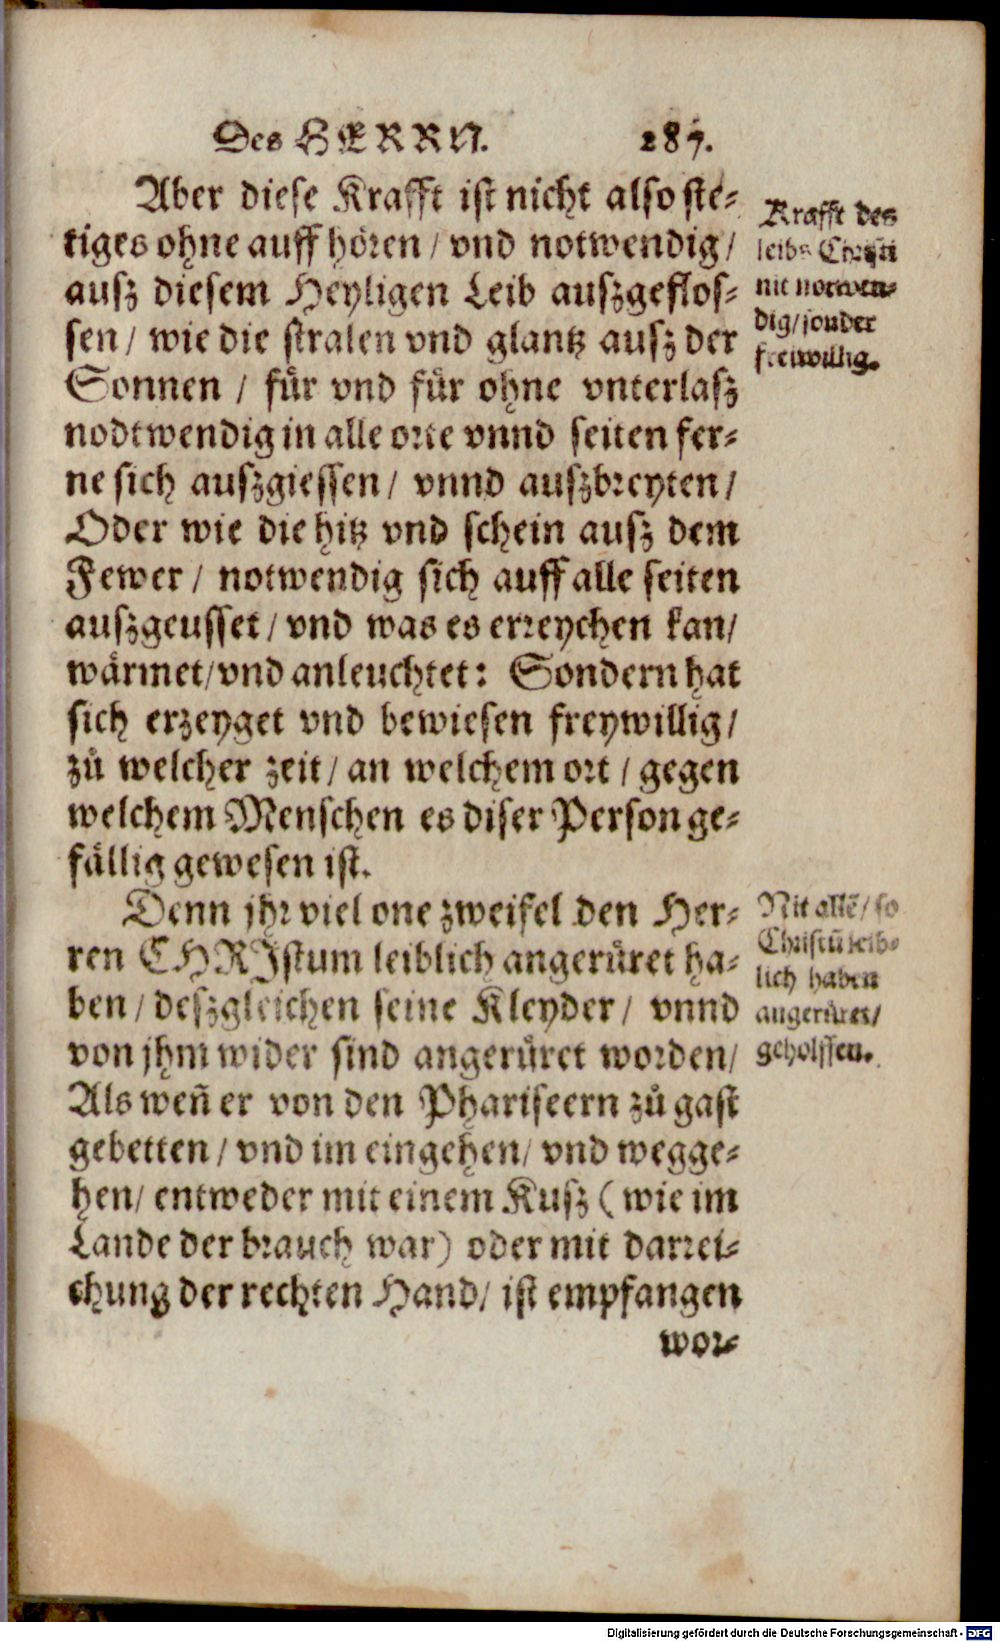 Des HERRN. 287.
Aber diese Krafft ist nicht also ste-
tiges ohne auffhören / vnd notwendig /
ausz diesem Heyligen Leib auszgeflos-
sen / wie die stralen vnd glantz ausz der
Sonnen / für vnd für ohne vnterlasz
nodtwendig in alle orte vnnd seiten fer-
ne sich auszgiessen / vnnd auszbreyten /
Oder wie die hitz vnd schein ausz dem
Fewer / notwendig sich auff alle seiten
auszgeusset / vnd was es erreychen kan /
wärmet / vnd anleuchtet: Sondern hat
sich erzeyget vnd bewiesen freywillig /
zů welcher zeit / an welchem ort / gegen
welchem Menschen es diser Person ge-
fällig gewesen ist.
Krafft des
leibs Christi
nit notwen-
dig / sonder
freiwillig.
Denn jhr viel one zweifel den Her-
ren CHRIstum leiblich angerüret ha-
ben / deszgleichen seine Kleyder / vnnd
von jhm wider sind angerüret worden /
Als weñ er von den Phariseern zů gast
gebetten / vnd im eingehen / vnd wegge-
hen / entweder mit einem Kusz (wie im
Lande der brauch war) oder mit darrei-
chung der rechten Hand / ist empfangen
wor-
Nit allē / so
Christū leib-
lich haben
angerüret /
geholffen.
Digitalisierung gefördert durch die Deutsche Forschungsgemeinschaft - DFG